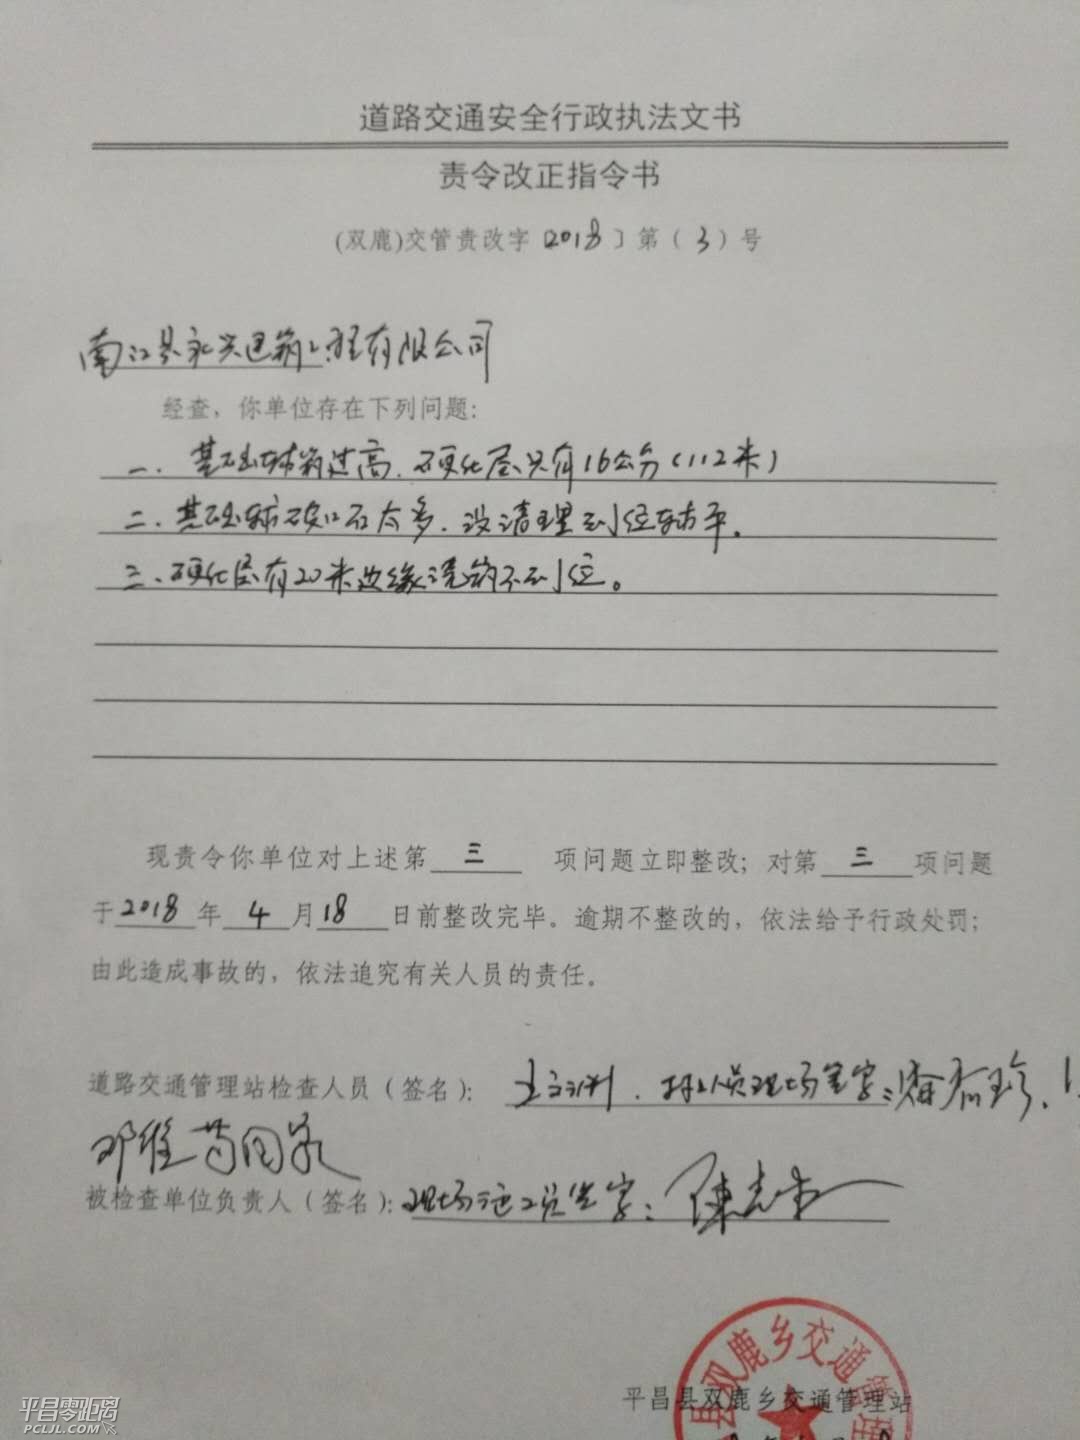 道路交通安全行政执法文书
责令改正指令书
(双鹿)交管责改字〔2018〕第(3)号
南江县永兴建筑工程有限公司
经查，你单位存在下列问题：
一、基础铺筑过高，硬化层只有16公分（112米）
二、基础铺破口石太多，没清理到位铺平。
三、硬化层有20米边缘浇筑不到位。
现责令你单位对上述第 三 项问题立即整改；对第 三 项问题
于2018年 4 月18 日前整改完毕。逾期不整改的，依法给予行政处罚；
由此造成事故的，依法追究有关人员的责任。
道路交通管理站检查人员（签名）： 现场签字：
被检查单位负责人（签名）：现场施工员签字：陈志
平昌县双鹿乡交通管理站
县双鹿乡交通管理
平昌零距离
PCLJL.COM